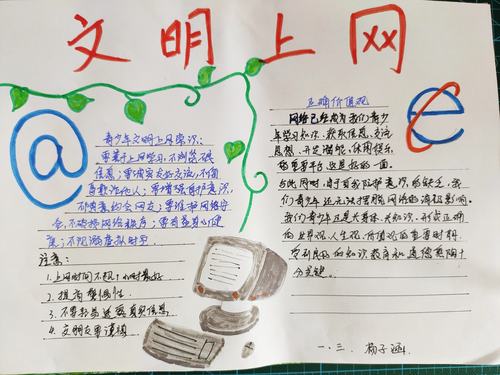 文明上网
@
青少年文明上网常识:
要善于上网学习,不浏览不良
信息;要诚实友好交流,不侮
辱欺诈他人;要增强自护意识,
不随意约会网友;要维护网络安
全,不破坏网络秩序;要有益身心健
康,不沉溺虚拟时空
注意:
1.上网时间不超1小时最好
2.提高警惕性
3.不要轻易透露真实信息
4.文明交流要谨慎
正确价值观
e
网络已经成为我们青少
年学习知识、获取信息、交流
思想、开发潜能、休闲娱乐
的重要平台,这是好的一面。
与此同时,由于自我防护意识的缺乏,我
们青少年还无法摆脱网络的消极影响。
我们青少年正是长身体、长知识、形成正确
的世界观、人生观、价值观的重要时期,
受到良好的知识教育和道德熏陶十
分关键。
一.三. 杨子涵